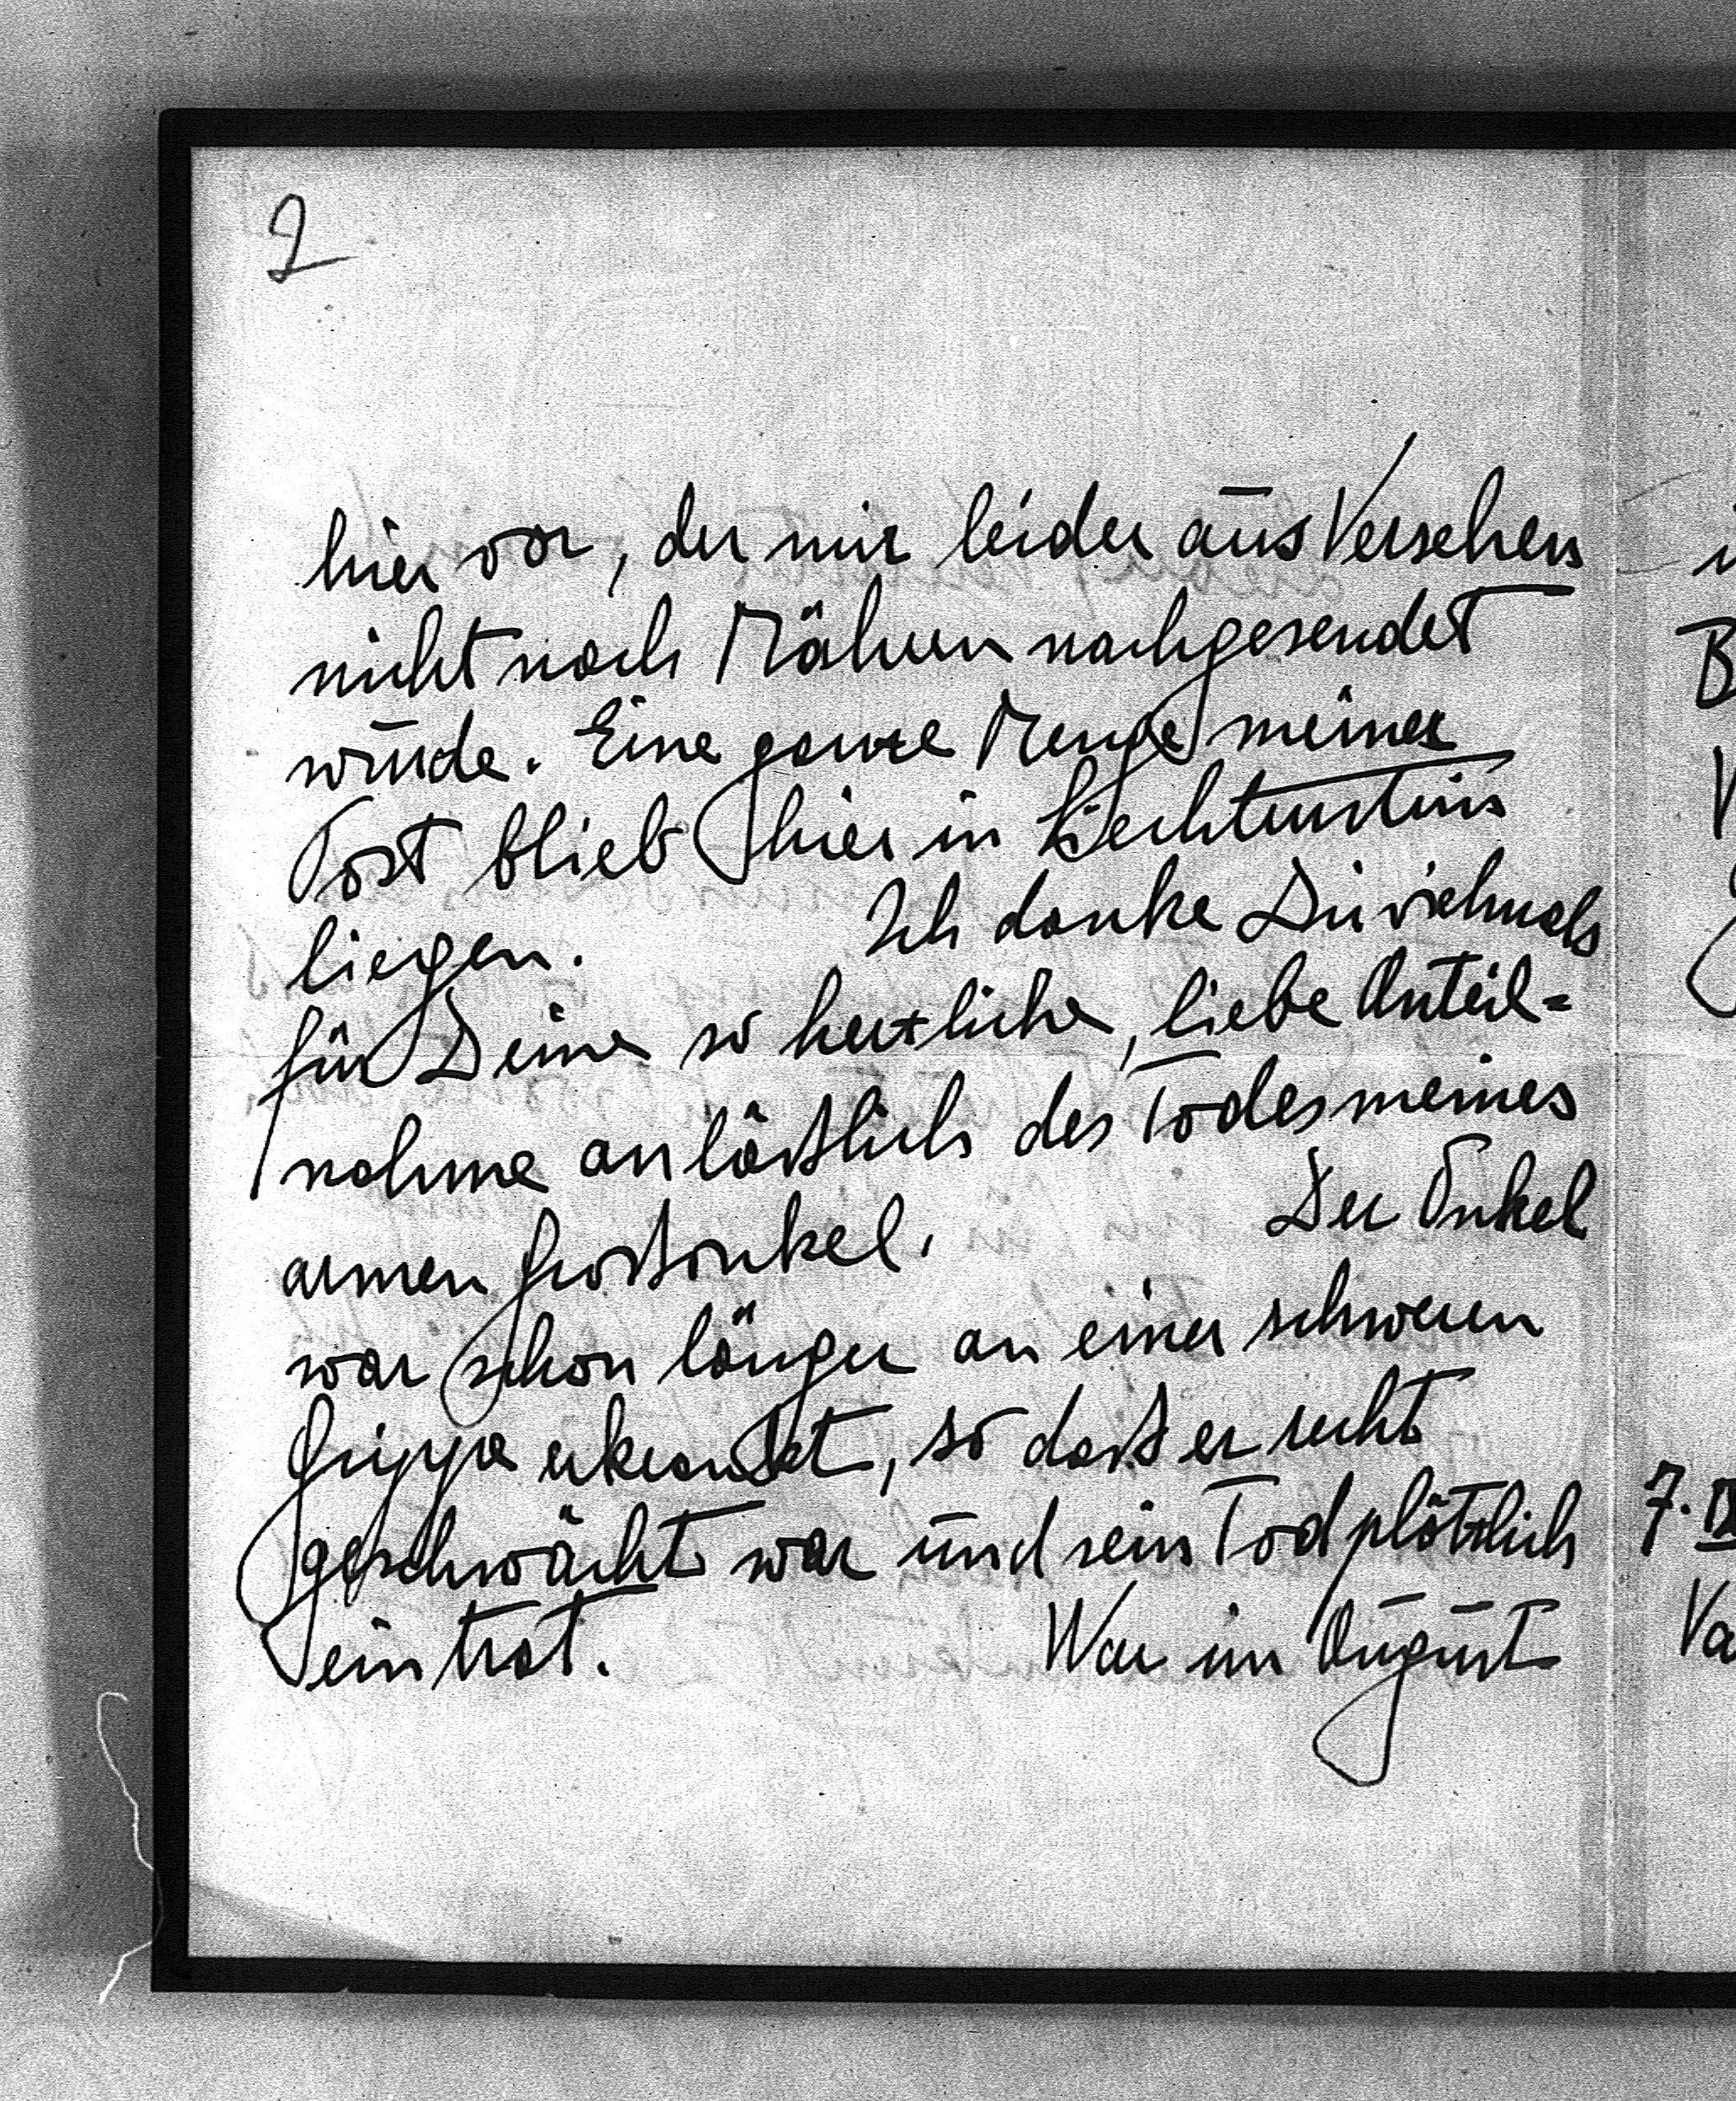 2
hier vor, der mir leider aus Versehen
nicht nach Mähren nachgesendet
wurde. Eine ganze Menge meiner
Post blieb hier in Liechtenstein
liegen. Ich danke Dir vielmals
für Deine so herzliche, liebe Anteil=
nahme anläßlich des Todes meines
armen Großonkel. Der Onkel
war schon länger an einer schweren
Grippe erkrankt, so daß er recht
geschwächt war und sein Tod plötzlich
eintrat. War im August
B
7. IX
Va